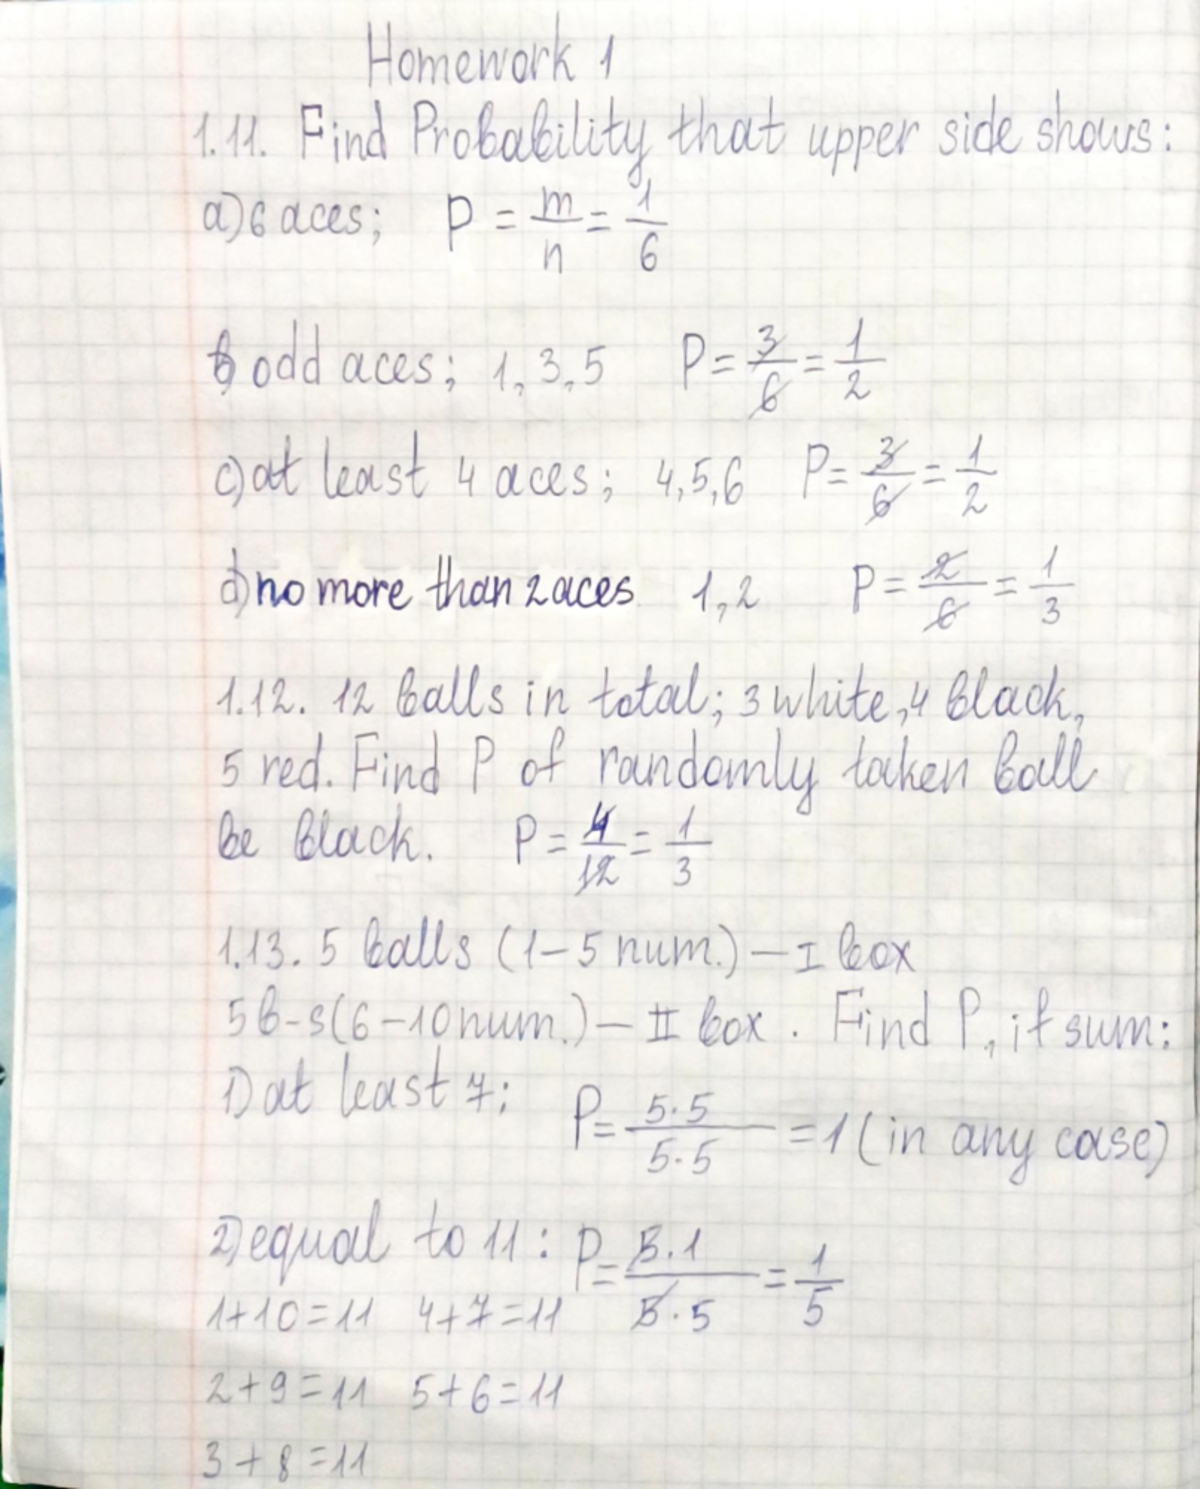 Homework 1
1.11. Find Probability that upper side shows:
a) 6 aces; P = m/n = 1/6
b) odd aces; 1, 3, 5 P = 3/6 = 1/2
c) at least 4 aces; 4,5,6 P = 3/6 = 1/2
d) no more than 2 aces 1,2 P = 2/6 = 1/3
1.12. 12 balls in total; 3 white, 4 black,
5 red. Find P of randomly taken ball
be black. P = 4/12 = 1/3
1.13. 5 balls (1-5 num.) — I box
5 b-s (6-10 num.) — II box. Find P, if sum:
1) at least 7; P = 5·5/5·5 = 1 (in any case)
2) equal to 11: P = 5·1/5·5 = 1/5
1+10=11 4+7=11
2+9=11 5+6=11
3+8=11